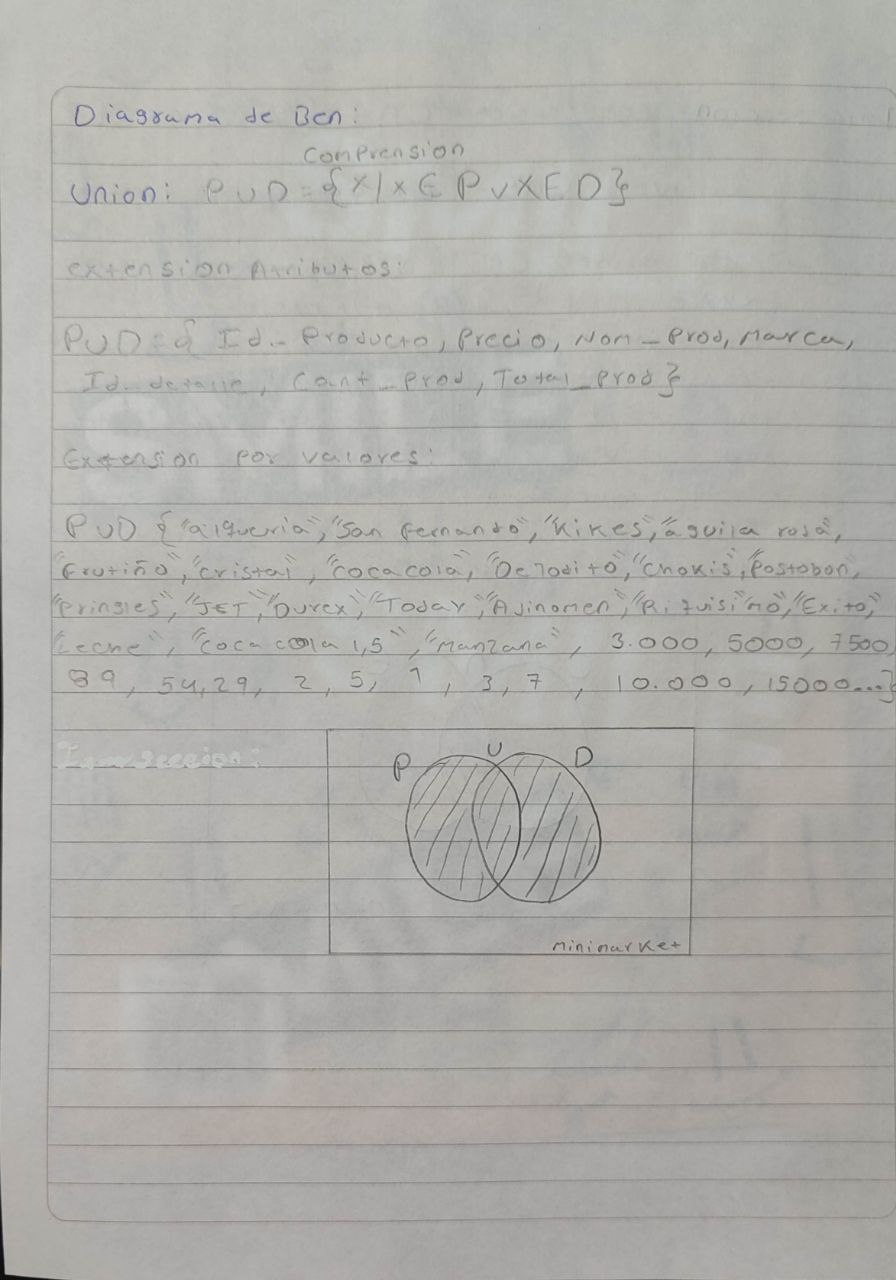 Diagrama de Ben:
Comprension
Union: P U D = {x/x ∈ P v x ∈ D}
extension Atributos:
P U D = { Id_Producto, Precio, Nom_Prod, Marca,
Id_detalle, Cant_Prod, Total_Prod}
Extension por valores:
P U D {"alqueria", "San fernando", "Kikes", "aguila roja",
"frutiño", "cristal", "coca cola", "De Todito", "Chokis", "Postobon,
"Pringles", "JET", "Durex", "Today", "Ajinomen", "Riquisimo", "Exito",
"Leche", "Coca cola 1,5", "Manzana", 3.000, 5000, 7500
89, 54, 29, 2, 5, 1, 3, 7, 10.000, 15000...}
P U D
minimarket